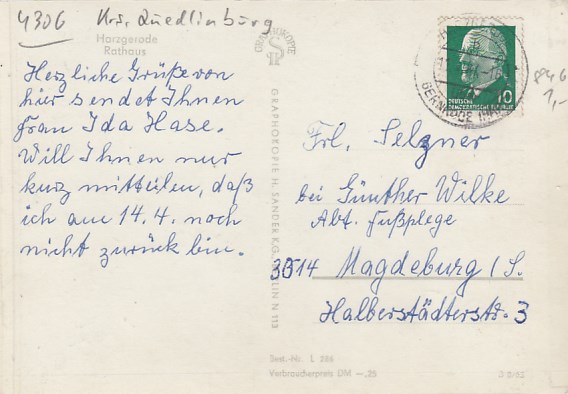 4306 Krs. Quedlinburg
Harzgerode
Rathaus
GRAPHOKOPIE
Herzliche Grüße von
hier sendet Ihnen
Frau Ida Hase.
Will Ihnen nur
kurz mitteilen, daß
ich am 14.4. noch
nicht zurück bin.
GRAPHOKOPIE H. SANDER KG. BERLIN N 113
DEUTSCHE
DEMOKRATISCHE REPUBLIK
10
BERNBURG
1,-
Frl. Selzner
bei Günther Wilke
Abt. Fußpflege
3014 Magdeburg / S.
Halberstädterstr. 3
Best.-Nr. L 286
Verbraucherpreis DM -,25